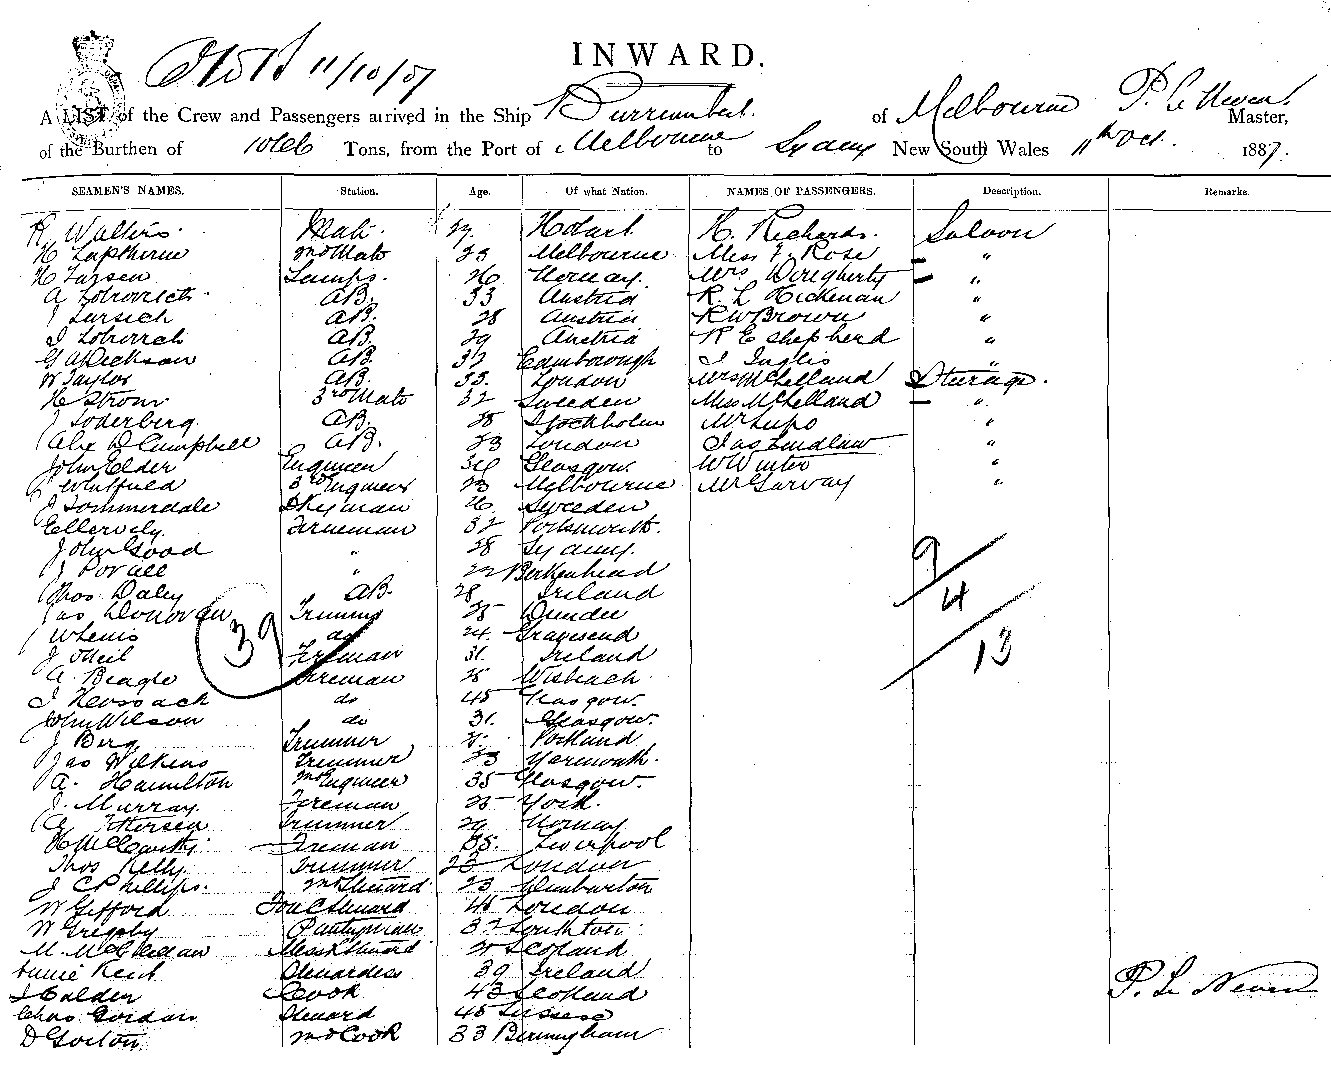 INWARD.
11/10/87
A LIST of the Crew and Passengers arrived in the Ship Burrumbeet. of Melbourne P. Le Neven. Master,
of the Burthen of Tons, from the Port of Melbourne to Sydney New South Wales 11th Oct. 1887.
SEAMEN'S NAMES. Station. Age. Of what Nation. NAMES OF PASSENGERS. Description. Remarks.
R Walters. Mate. 27. Hobart H. Richards. Saloon
H Lapthorne 2nd Mate 23 Melbourne Miss F. Rose "
H Larsen Lamps. 26 Norway. Mrs Dougherty "
A AB. 33 Austria R. L Hickman "
J Lursich AB. 28 Austria R W Brown "
J AB. 29 Austria R E Shepherd "
G A Dickson AB. 32 Edinborough J Inglis "
W Taylor AB. 33. London Mrs McLelland Steerage.
H Strom 3rd Mate 32 Sweeden Miss McLelland "
J Soderberg. AB. 28 Stockholm Mr Lupo "
Alex D Campbell AB. 23 London Jas Laidlaw "
John Elder Engineer Glasgow W Winter "
Whitfield 3rd Engineer 23 Melbourne Mr Garvay "
J Sommerdale Dkeyman 26. Sweeden
Ellervely. Firieman 32 Portsmouth.
John Good " 28 Sydney. 9
J Povall " 22 Berkenhead
Thos Daley AB. 28 Ireland 4
Jas Donovan Trimmer 25 Dundee
W Lewis do 24. Gravesend
39
J ONeil Fireman 31. Ireland 13
A. Beagle Fireman 25 Wisbeach.
J Hossack do 45 Glasgow.
John Wilson do 31. Glasgow.
J Berg Trimmer Portland
Jas Wilkins Trimmer 23 Yarmouth.
A. Hamilton 2nd Engineer 35 Glasgow.
J. Murray. Fireman 25 York.
A Pettersen Trimmer 29 Norway
H McCarthy. Fireman 35. Liverpool
Thos Kelly. Trimmer 23 London
J C Phillips. 2nd Steward 23 Dumbarton
W Gifford Fore C Steward 45 London
W Grigsby Pantryman 32 Southton
M McClellan Mess R Steward Scotland
Annie Kent Stewardess 39 Ireland
J Calder Cook 43 Scotland P. Le Neven
Chas Gordan Steward 45 Sussex
D Gorton 2nd Cook 33 Birmingham